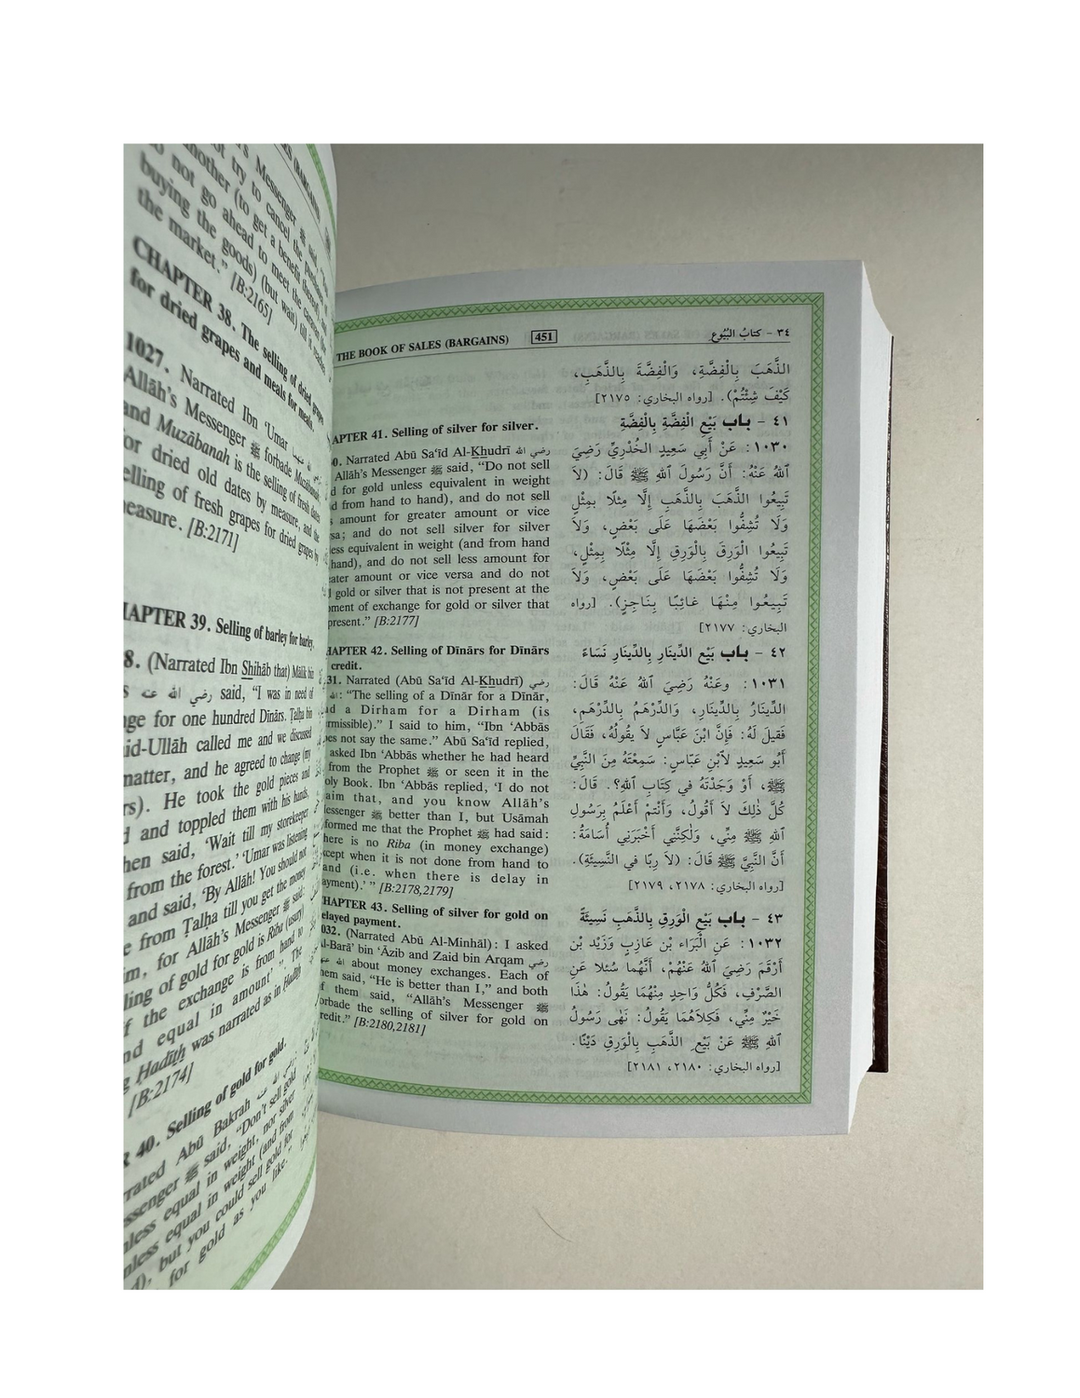 buying the goods) (but wait) till it reaches
the market." [B:2165]
CHAPTER 38. The selling of dried grapes
for dried grapes and meals for meals.
1027. Narrated Ibn ‘Umar
Allāh's Messenger ﷺ forbade Muzābanah
and Muzābanah is the selling of fresh dates
for dried old dates by measure, and the
selling of fresh grapes for dried grapes by
measure. [B:2171]
CHAPTER 39. Selling of barley for barley.
8. (Narrated Ibn Shihāb that) Mālik bin
رضي الله عنه said, "I was in need of
for one hundred Dīnārs. Ṭalḥa bin
-Ullāh called me and we discussed
matter, and he agreed to change (my
He took the gold pieces and
and toppled them with his hands,
then said, ‘Wait till my storekeeper
from the forest.’ ‘Umar was listening
and said, ‘By Allāh! You should not
from Ṭalḥa till you get the money
for Allāh's Messenger ﷺ said:
of gold for gold is Riba (usury)
the exchange is from hand to
and equal in amount’ " The
Ḥadīth was narrated as in Ḥadīth
[B:2174]
40. Selling of gold for gold.
Abū Bakrah
ﷺ said, "Don't sell gold
equal in weight, nor silver
equal in weight (and from
but you could sell gold for
for gold as you like."
THE BOOK OF SALES (BARGAINS) 451 ٣٤ - كتابُ البُيُوع
APTER 41. Selling of silver for silver.
0. Narrated Abū Sa‘īd Al-Khudrī رضي الله
Allāh's Messenger ﷺ said, "Do not sell
d for gold unless equivalent in weight
d from hand to hand), and do not sell
s amount for greater amount or vice
sa; and do not sell silver for silver
ess equivalent in weight (and from hand
hand), and do not sell less amount for
ater amount or vice versa and do not
gold or silver that is not present at the
ment of exchange for gold or silver that
present." [B:2177]
HAPTER 42. Selling of Dīnārs for Dīnārs
credit.
31. Narrated (Abū Sa‘īd Al-Khudrī) رضي
الله: "The selling of a Dīnār for a Dīnār,
d a Dirham for a Dirham (is
rmissible)." I said to him, "Ibn ‘Abbās
es not say the same." Abū Sa‘īd replied,
asked Ibn ‘Abbās whether he had heard
from the Prophet ﷺ or seen it in the
oly Book. Ibn ‘Abbās replied, ‘I do not
aim that, and you know Allāh's
essenger ﷺ better than I, but Usāmah
formed me that the Prophet ﷺ had said:
here is no Riba (in money exchange)
cept when it is not done from hand to
and (i.e. when there is delay in
ayment).’ " [B:2178,2179]
HAPTER 43. Selling of silver for gold on
elayed payment.
032. (Narrated Abū Al-Minhāl): I asked
l-Barā’ bin ‘Āzib and Zaid bin Arqam رضي
الله about money exchanges. Each of
hem said, "He is better than I," and both
f them said, "Allāh's Messenger ﷺ
orbade the selling of silver for gold on
redit." [B:2180,2181]
الذَّهَبَ بِالْفِضَّةِ، وَالْفِضَّةَ بِالذَّهَبِ،
كَيْفَ شِئْتُمْ). [رواه البخاري: ٢١٧٥]
٤١ - باب بَيْعِ الْفِضَّةِ بِالْفِضَّةِ
١٠٣٠: عَنْ أَبِي سَعِيدٍ الخُدْرِيِّ رَضِيَ
اللهُ عَنْهُ: أَنَّ رَسُولَ اللهِ ﷺ قَالَ: (لاَ
تَبِيعُوا الذَّهَبَ بِالذَّهَبِ إِلَّا مِثْلًا بِمِثْلٍ
وَلَا تُشِفُّوا بَعْضَهَا عَلَى بَعْضٍ، وَلَا
تَبِيعُوا الوَرِقَ بِالْوَرِقِ إِلَّا مِثْلًا بِمِثْلٍ،
وَلَا تُشِفُّوا بَعْضَهَا عَلَى بَعْضٍ، وَلَا
تَبِيعُوا مِنْهَا غَائِبًا بِنَاجِزٍ). [رواه
البخاري: ٢١٧٧]
٤٢ - باب بَيْعِ الدِّينَارِ بِالدِّينَارِ نَسَاءً
١٠٣١: وعَنْهُ رَضِيَ اللهُ عَنْهُ قَالَ:
الدِّينَارُ بِالدِّينَارِ، وَالدِّرْهَمُ بِالدِّرْهَمِ،
فَقيلَ لَهُ: فَإِنَّ ابْنَ عَبَّاسٍ لاَ يَقُولُهُ، فَقَالَ
أَبُو سَعِيدٍ لاِبْنِ عَبَّاسٍ: سَمِعْتَهُ مِنَ النَّبِيِّ
ﷺ، أَوْ وَجَدْتَهُ في كِتَابِ اللهِ؟. قَالَ:
كُلَّ ذٰلِكَ لاَ أَقُولُ، وَأَنْتُمْ أَعْلَمُ بِرَسُولِ
اللهِ ﷺ مِنِّي، وَلٰكِنَّنِي أَخْبَرَنِي أُسَامَةُ:
أَنَّ النَّبِيَّ ﷺ قَالَ: (لاَ رِبًا في النَّسِيئَةِ).
[رواه البخاري: ٢١٧٨، ٢١٧٩]
٤٣ - باب بَيْعِ الْوَرِقِ بِالذَّهَبِ نَسِيئَةً
١٠٣٢: عَنِ الْبَرَاءِ بْنِ عَازِبٍ وَزَيْدِ بْنِ
أَرْقَمَ رَضِيَ اللهُ عَنْهُمْ، أَنَّهُما سُئلا عَنِ
الصَّرْفِ، فَكُلُّ وَاحِدٍ مِنْهُمَا يَقُولُ: هٰذَا
خَيْرٌ مِنِّي، فَكِلاَهُمَا يَقُولُ: نَهٰى رَسُولُ
اللهِ ﷺ عَنْ بَيْعِ الذَّهَبِ بِالْوَرِقِ دَيْنًا.
[رواه البخاري: ٢١٨٠، ٢١٨١]